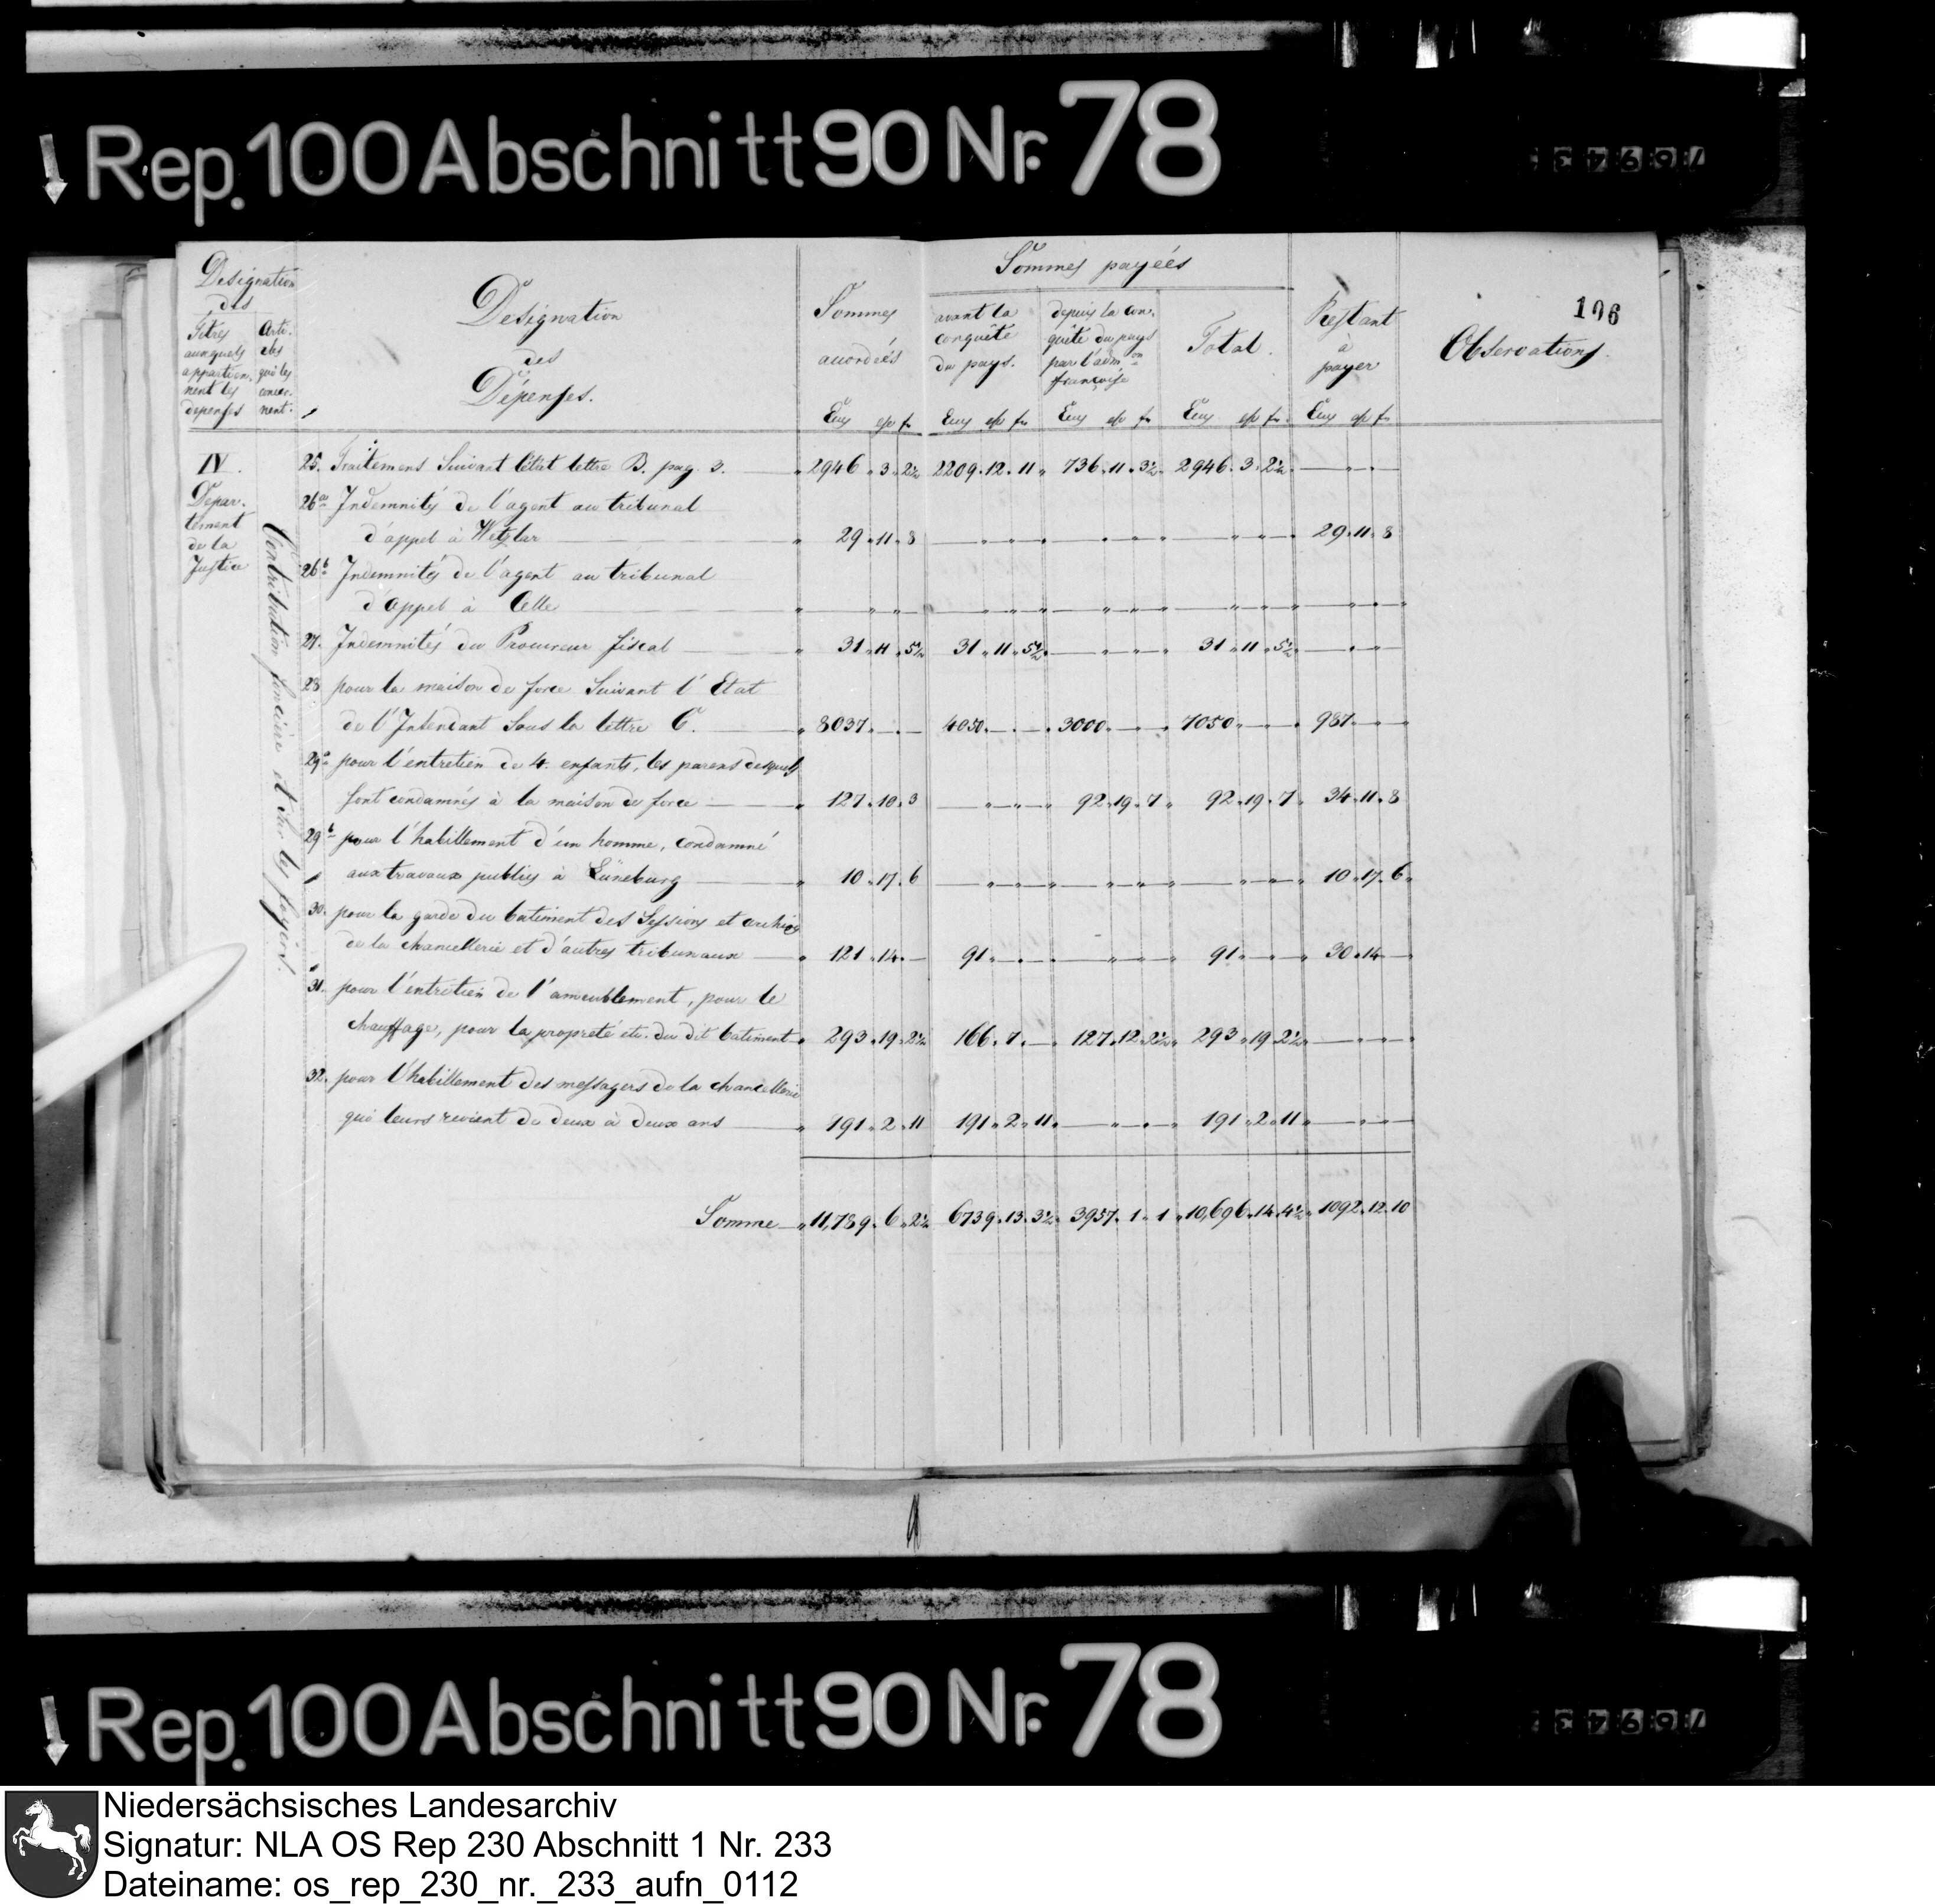 Rep. 100 Abschnitt 90 Nr. 78
106
Designation
des
Titres auxquels appartiennent les depenses
Articles qui les concernent
Designation
des
Dépenses.
Sommes accordées
Sommes payées
avant la conquête du pays.
depuis la conquête du pays par l'adm.on françoise
Total.
Restant à payer
Observations.
Ecus gr fn Ecus gr fn Ecus gr fn Ecus gr fn Ecus gr fn
IV.
Departement
de la
Justice
Contribution foncière et sur les foyers.
25. Traitemens Suivant l'état lettre B. pag. 3. 2946 3 2½ 2209 12 11 736 11 3½ 2946 3 2½
26a Indemnités de l'agent au tribunal
d'appel à Wetzlar 29 11 8 29 11 8
26b Indemnités de l'agent au tribunal
d'appel à Celle
27. Indemnités du Procureur fiscal 31 11 5½ 31 11 5½ 31 11 5½
28 pour la maison de force Suivant l'Etat
de l'Intendant Sous la lettre C. 8037 4050 3000 7050 987
29a pour l'entretien de 4. enfants, les parens desquels
sont condamnés à la maison de force 127 10 3 92 19 7 92 19 7 34 11 8
29b pour l'habillement d'un homme, condamné
aux travaux publics à Lüneburg 10 17 6 10 17 6
30. pour la garde du batiment des Sessions et archives
de la chancellerie et d'autres tribunaux 121 14 91 91 30 14
31. pour l'entretien de l'ameublement, pour le
chauffage, pour la propreté etc. du dit batiment 293 19 2½ 166 7 127 12 2½ 293 19 2½
32. pour l'habillement des messagers de la chancellerie
qui leurs revient de deux à deux ans 191 2 11 191 2 11 191 2 11
Somme 11,789 6 2½ 6739 13 3½ 3957 1 1 10,696 14 4½ 1092 12 10
Rep. 100 Abschnitt 90 Nr. 78
Niedersächsisches Landesarchiv
Signatur: NLA OS Rep 230 Abschnitt 1 Nr. 233
Dateiname: os_rep_230_nr._233_aufn_0112